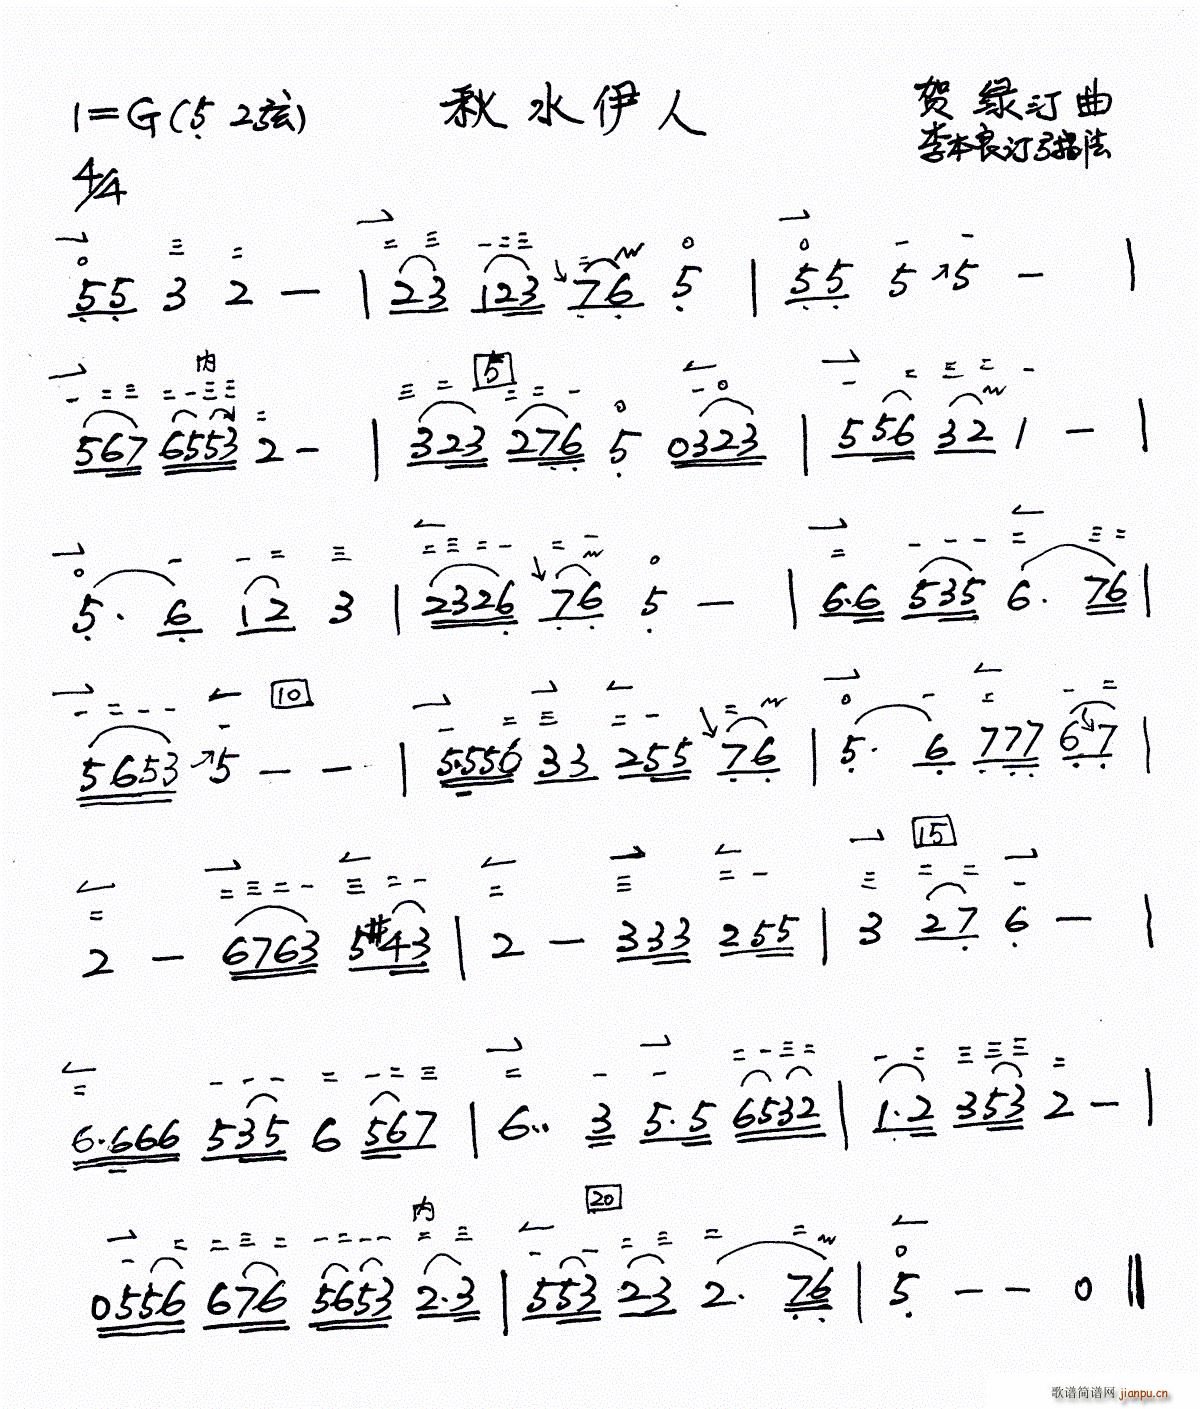 1=G(5 2弦) 秋水伊人 贺绿汀曲
4/4 李本良订弓指法
55 3 2 — | 23 123 76 5 | 55 5 ↗5 — |
内
567 6553 2 — | 323 276 5 0323 | 556 32 1 — |
5
5. 6 12 3 | 2326 76 5 — | 6.6 535 6. 76 |
10
5653 ↗5 — — | 5.556 33 255 76 | 5. 6 777 67 |
15
2 — 6763 5#43 | 2 — 333 255 | 3 27 6 — |
6.666 535 6 567 | 6.. 3 5.5 6532 | 1.2 353 2 — |
内 20
0556 676 5653 2.3 | 553 23 2. 76 | 5 — — 0 ||
歌谱简谱网 jianpu.cn